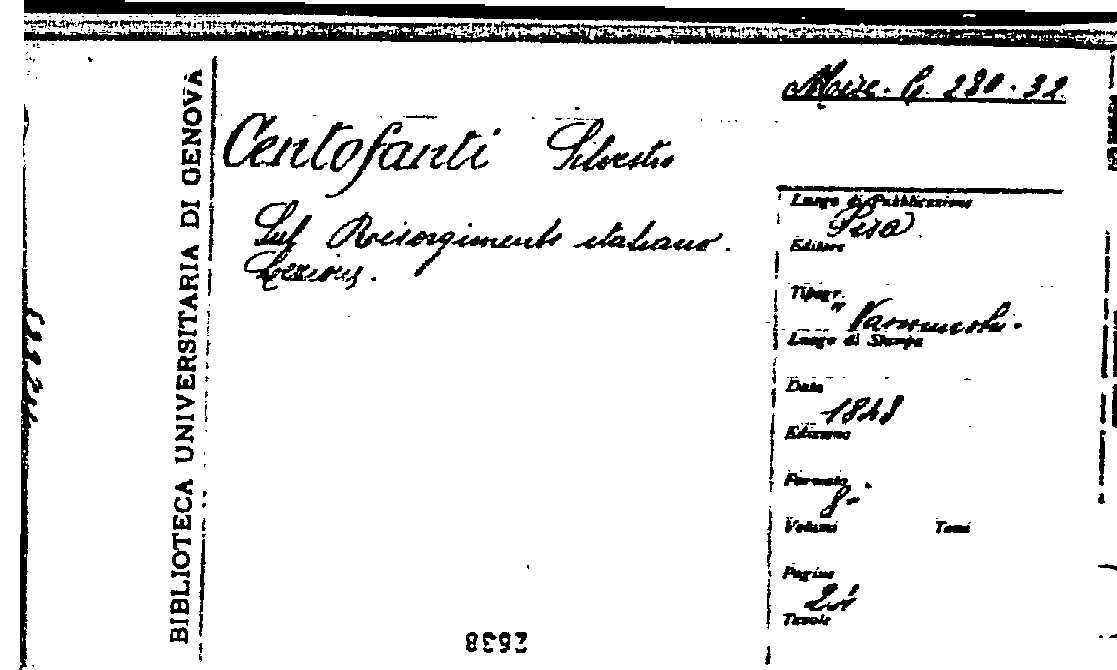 BIBLIOTECA UNIVERSITARIA DI GENOVA
Misc. G. 280.32
Centofanti Silvestro
Sul Risorgimento italiano.
Lezioni.
Luogo di Pubblicazione
Pisa
Editore
Tipogr.
Vannucchi.
Luogo di Stampa
Data
1848
Edizione
Formato
8°
Volumi Tomi
Pagine
Tavole
2638